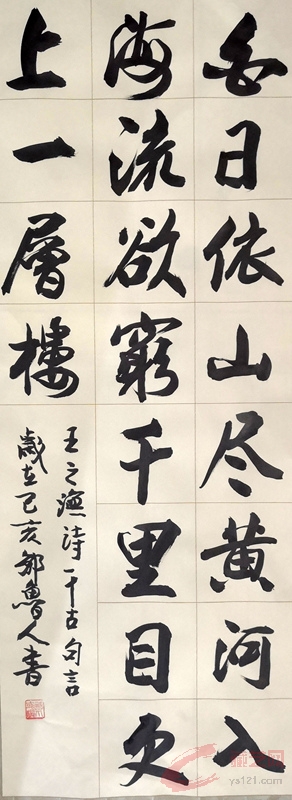 白日依山尽黄河入
海流欲窮千里目更
上一層樓
王之渙詩千古句言
歲在己亥鄒魯人書
ys121.com